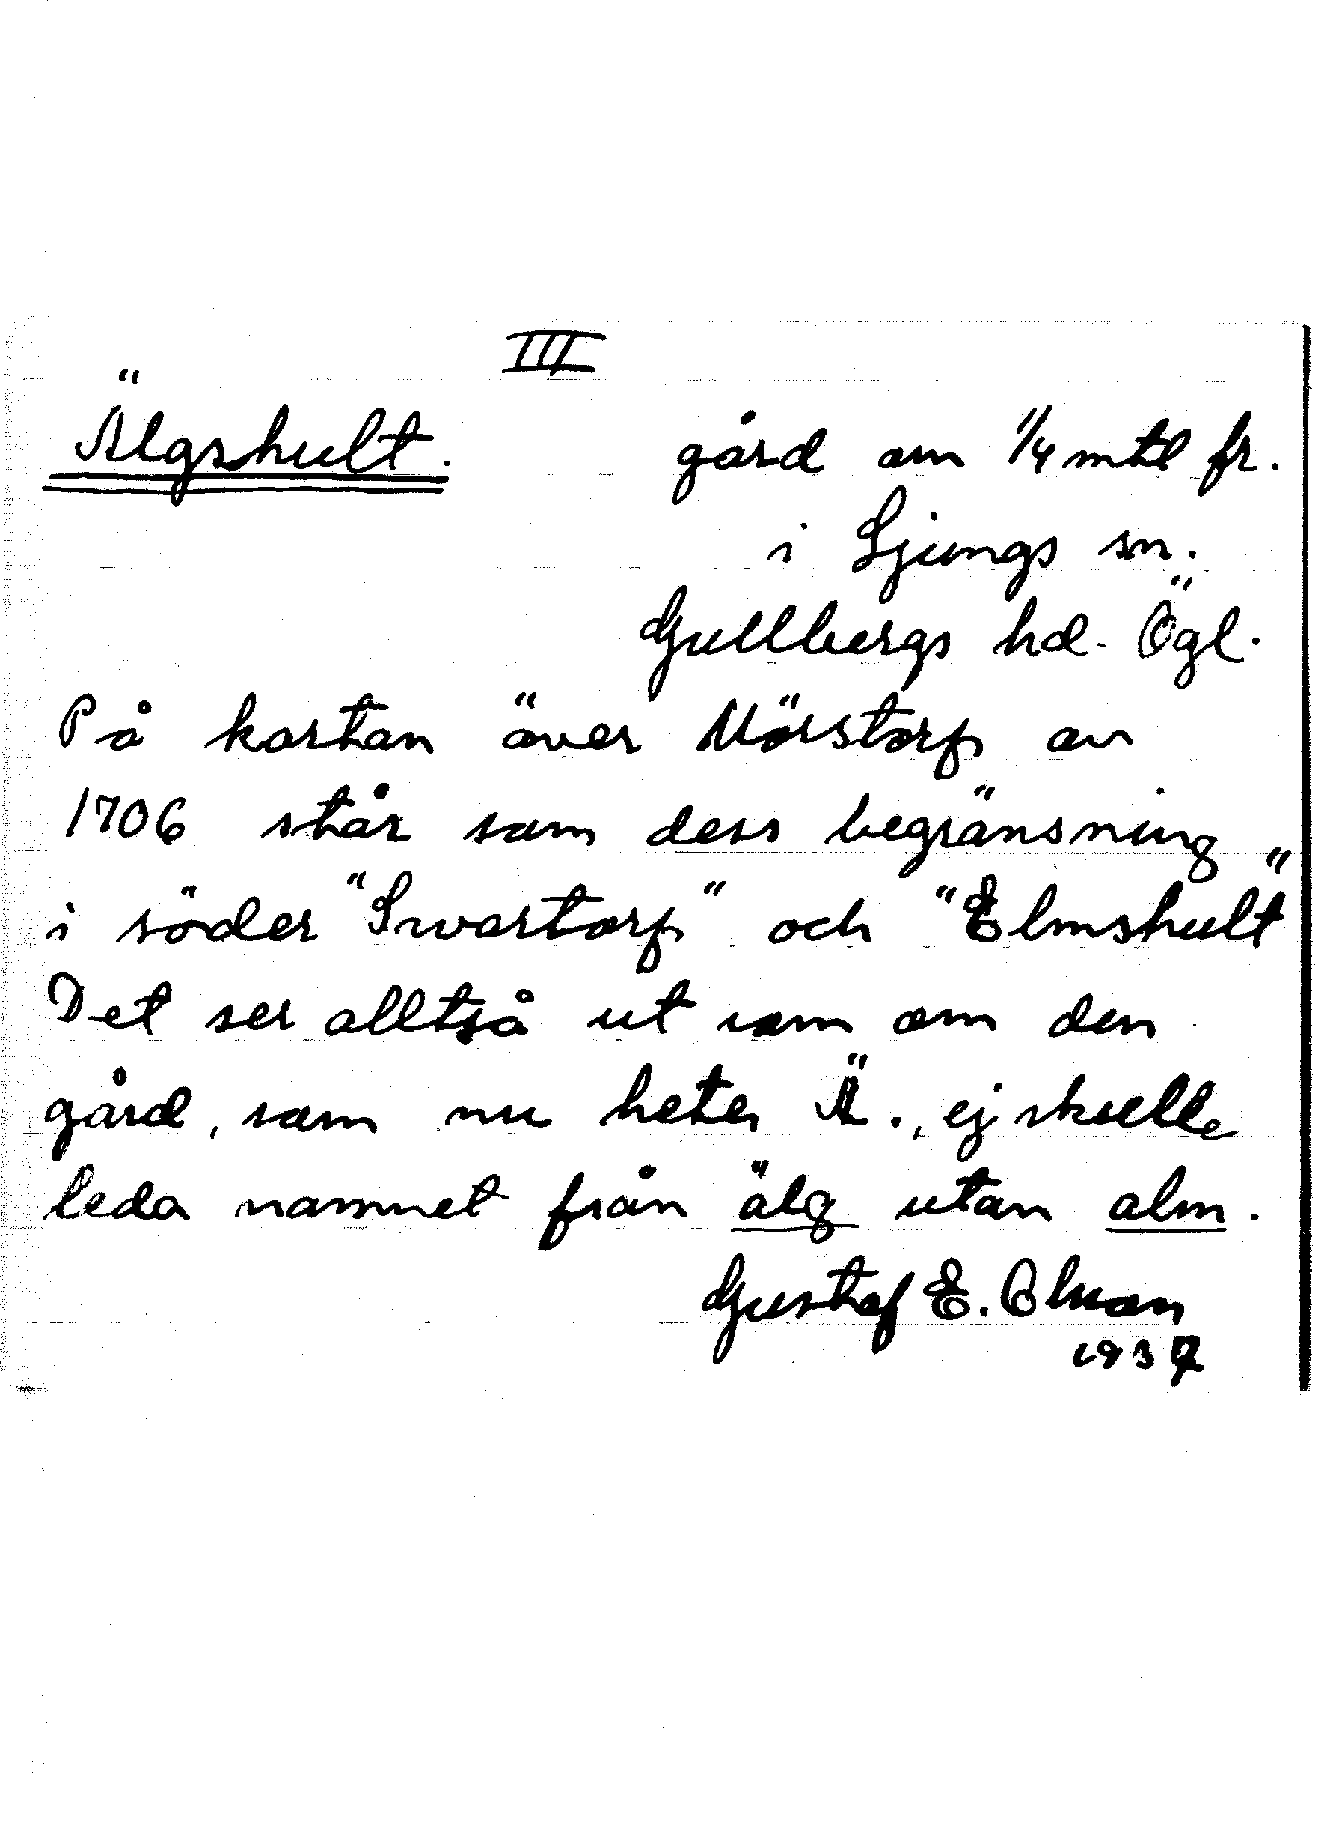 III
Älgshult.
gård om 1/4 mtl fr.
i Ljungs sn.
Gullbergs hd. Ögl.
På kartan över Mörstorp av
1706 står som dess begränsning
i söder "Swartorp" och "Elmshult"
Det ser alltså ut som om den
gård, som nu heter Ä., ej skulle
leda namnet från älg utan alm.
Gustaf E.
193